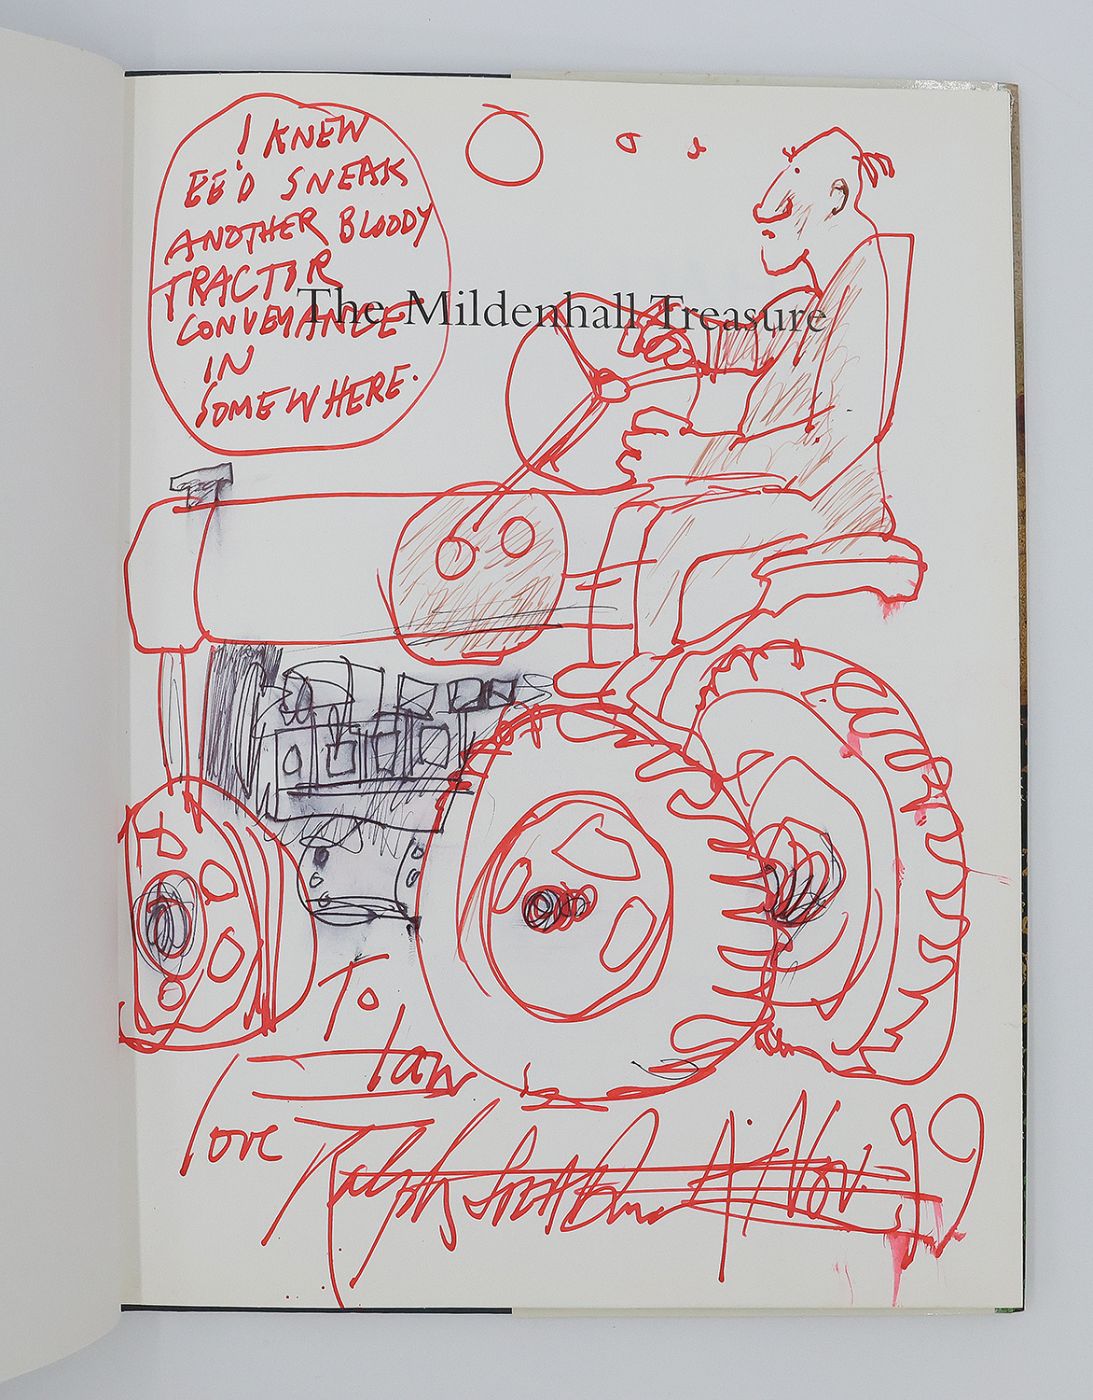 I KNEW
EE'D SNEAK
ANOTHER BLOODY
TRACTOR
CONVEYANCE
IN
SOMEWHERE.
The Mildenhall Treasure
To
Ian
love Ralph STEADman Nov. 99